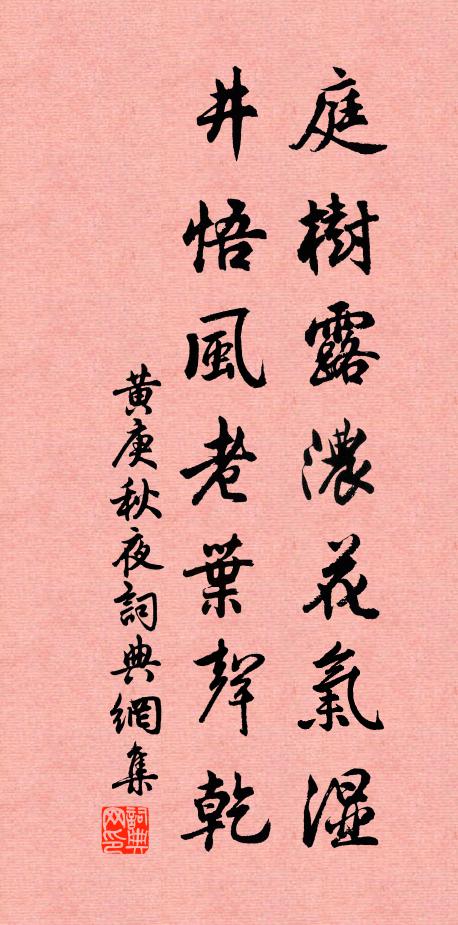 庭樹露濃花氣濕
井悟風老葉聲乾
黃庚秋夜詞典網集
詞典網印